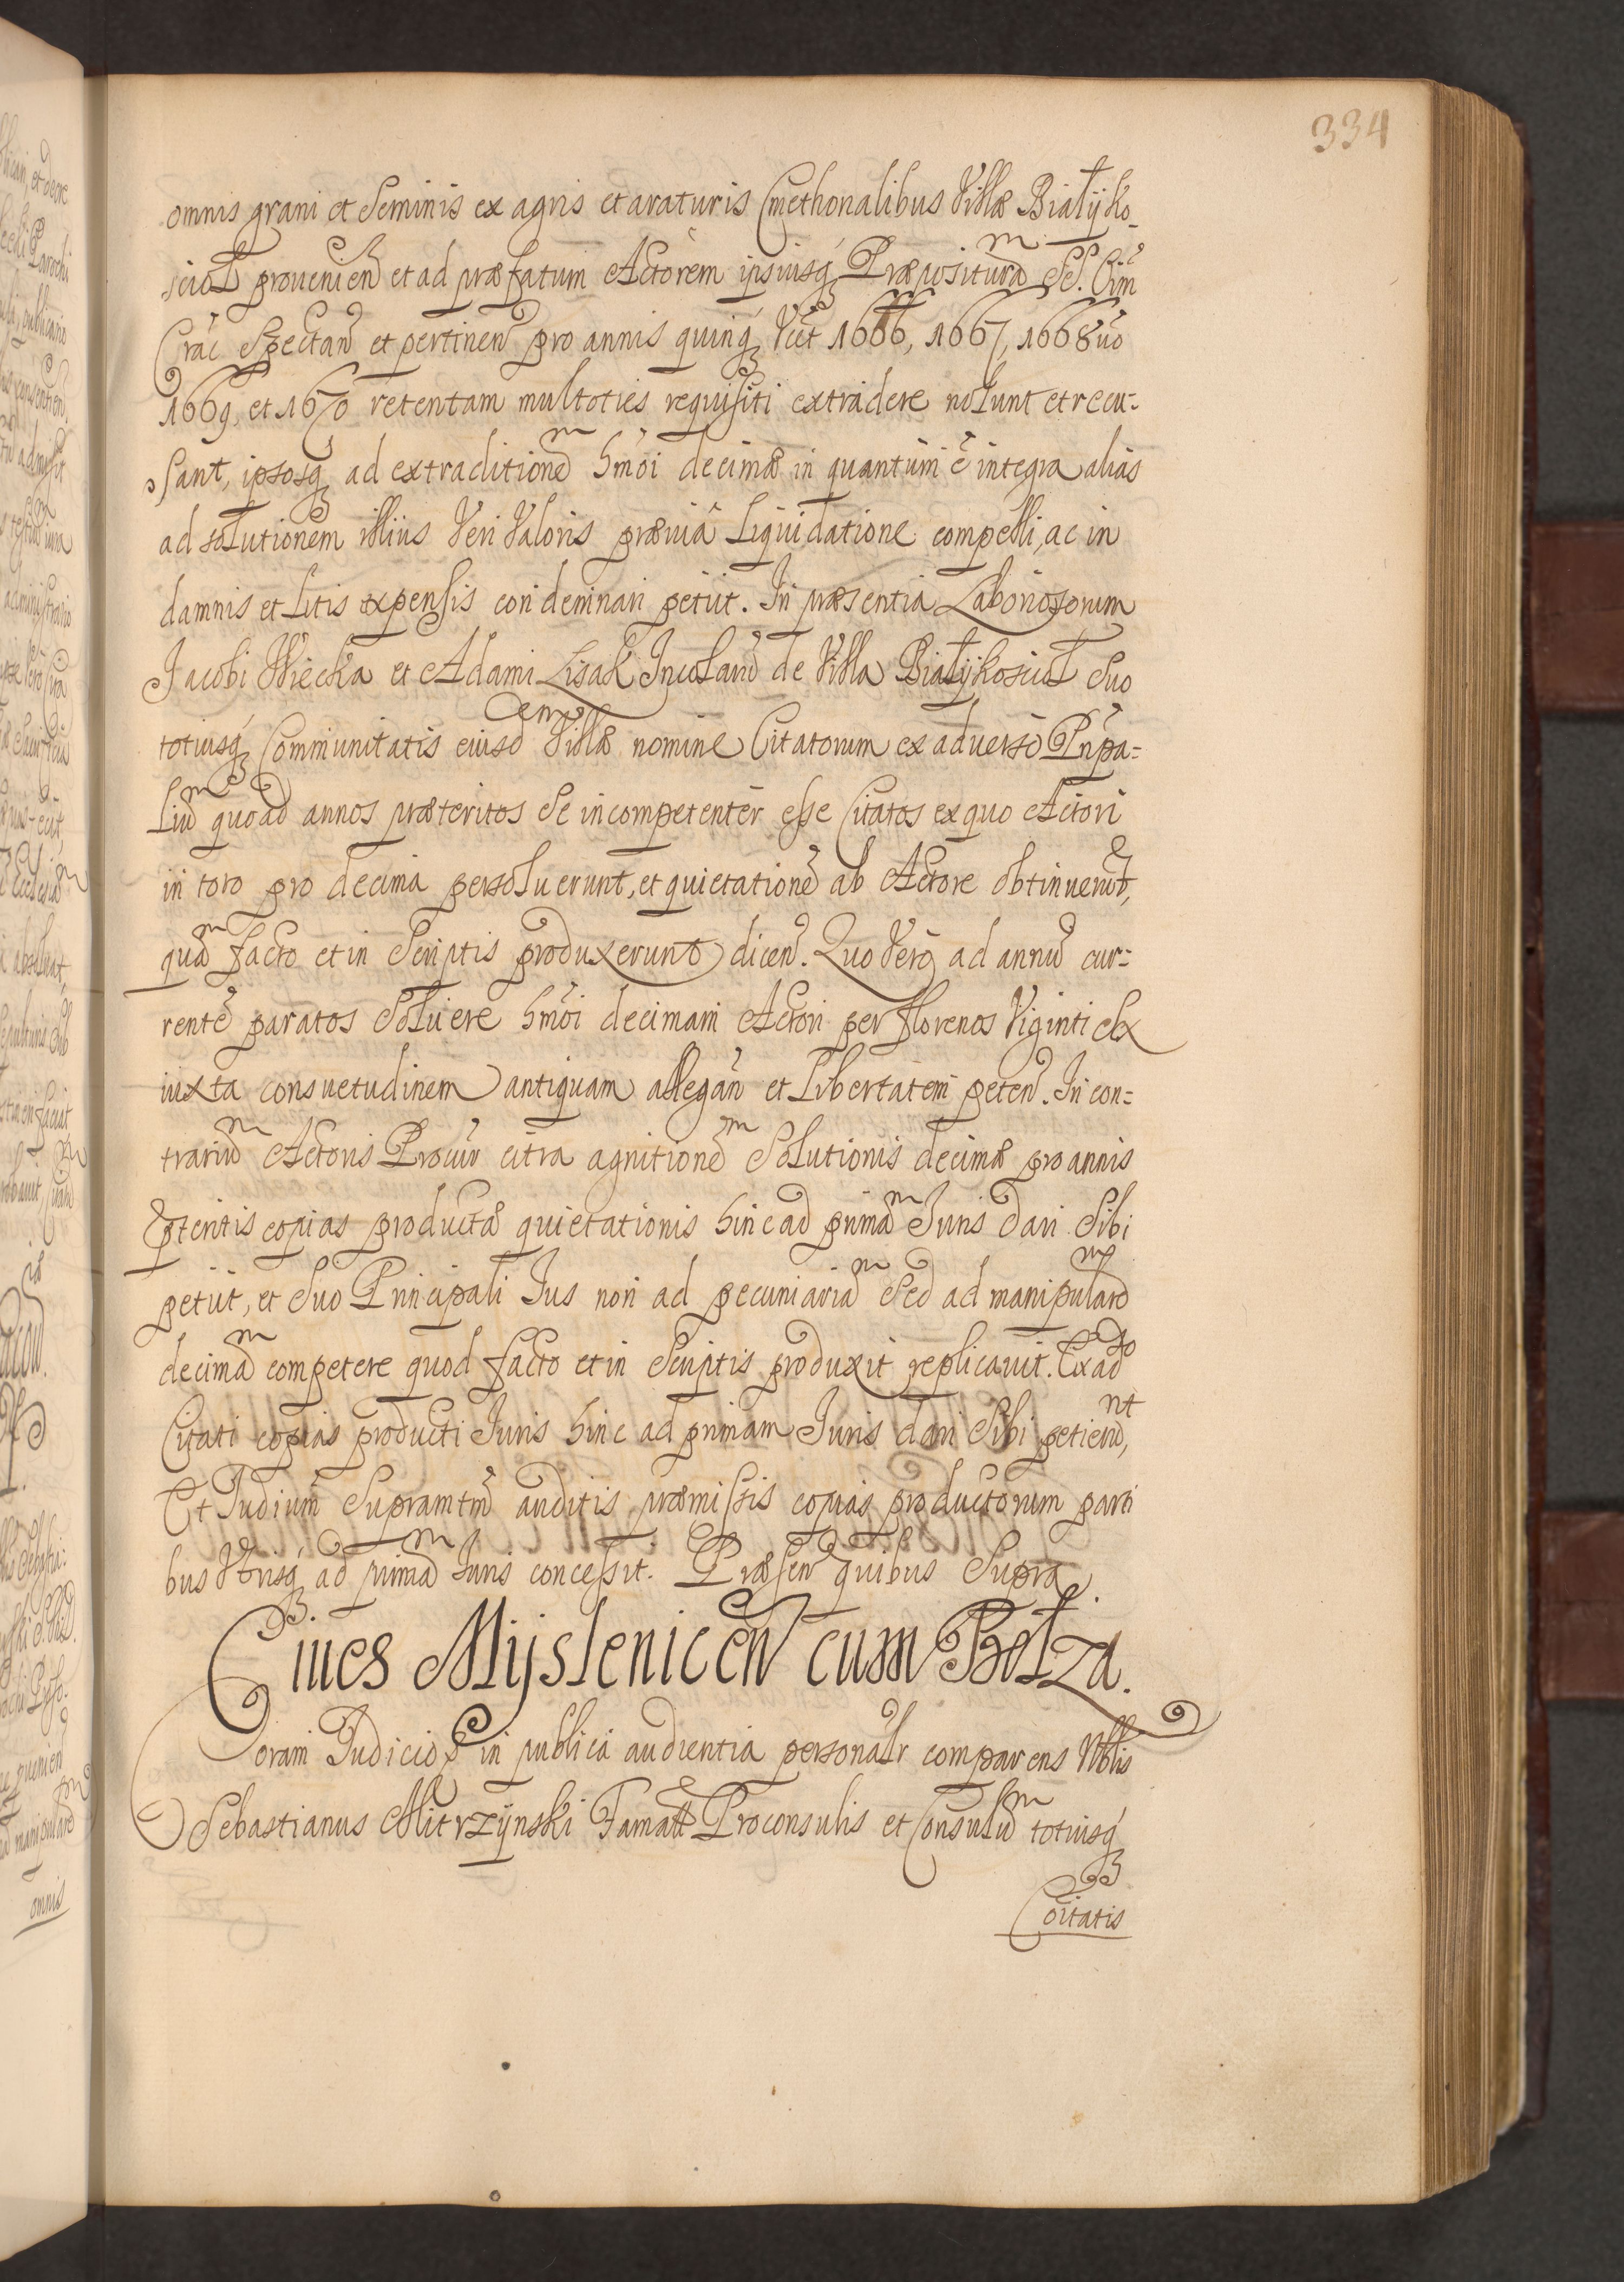 334
omnis grani et Seminis ex agris et araturis Cmethonalibus Villæ Białyko-
sciol provenien et ad præfatum Actorem ipsiusq Præposituram SS. Oim
Crac Spectan et pertinen pro annis quinq Vcet 1666, 1667, 1668vo
1669, et 1670 retentam multoties requisiti extradere nolunt et recu-
sant, ipsosq ad extraditionem hmoi decimæ in quantum e integra alias
ad solutionem illius Veri Valoris prævia Liquidatione compelli, ac in
damnis et Litis expensis condemnari petiit. In præsentia Laboriosorum
Jacobi Wiecka et Adami Lisak Incolarū de Villa Białykosciol Suo
totiusq Communitatis eiusdem Villæ nomine Citatorum ex adverso Pnpa-
lium quoad annos præteritos Se incompetenter esse Citatos ex quo Actori
in toto pro decima persoluerunt, et quietationē ab Actore obtinuerūt,
quam facto et in Scriptis produxerunt dicen. Quo Vero ad annū cur-
rentē paratos Soluere hmoi decimam Actori per florenos Viginti Sex
iuxta consuetudinem antiquam allegan et Libertatem peten. In con-
trarium Actoris Procur citra agnitionem Solutionis decimæ pro annis
pteritis copias productæ quietationis hinc ad primam Iuris dari Sibi
petiit, et Suo Principali Ius non ad pecuniariam Sed ad manipularem
decimam competere quod facto et in Scriptis produxit replicauit. Ex ado
Citati copias producti Iuris hinc ad primam Iuris dari Sibi petierunt,
Et Iudium Supramtm auditis præmissis copias productorum parti
bus Vtrisq ad primam Iuris concessit. Præsen quibus Supra.
Ciues Mijslenicen cum Betza.
Coram Iudicio in publica audientia personalr comparens Nblis
Sebastianus Mitrzÿnski Famatt Proconsulis et Consulum totiusq
Coitatis